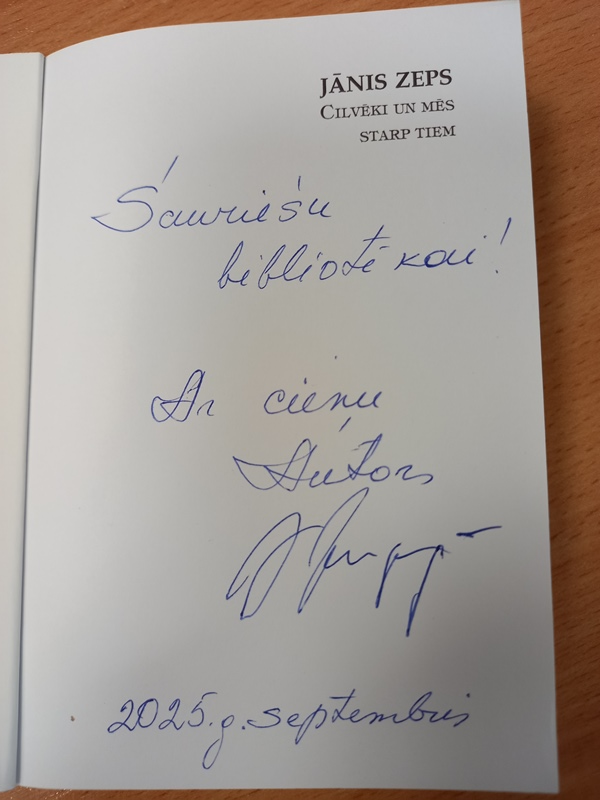 JĀNIS ZEPS
CILVĒKI UN MĒS
STARP TIEM
Šauriešu
bibliotēkai!
Ar cieņu
Autors
2025.g. septembris